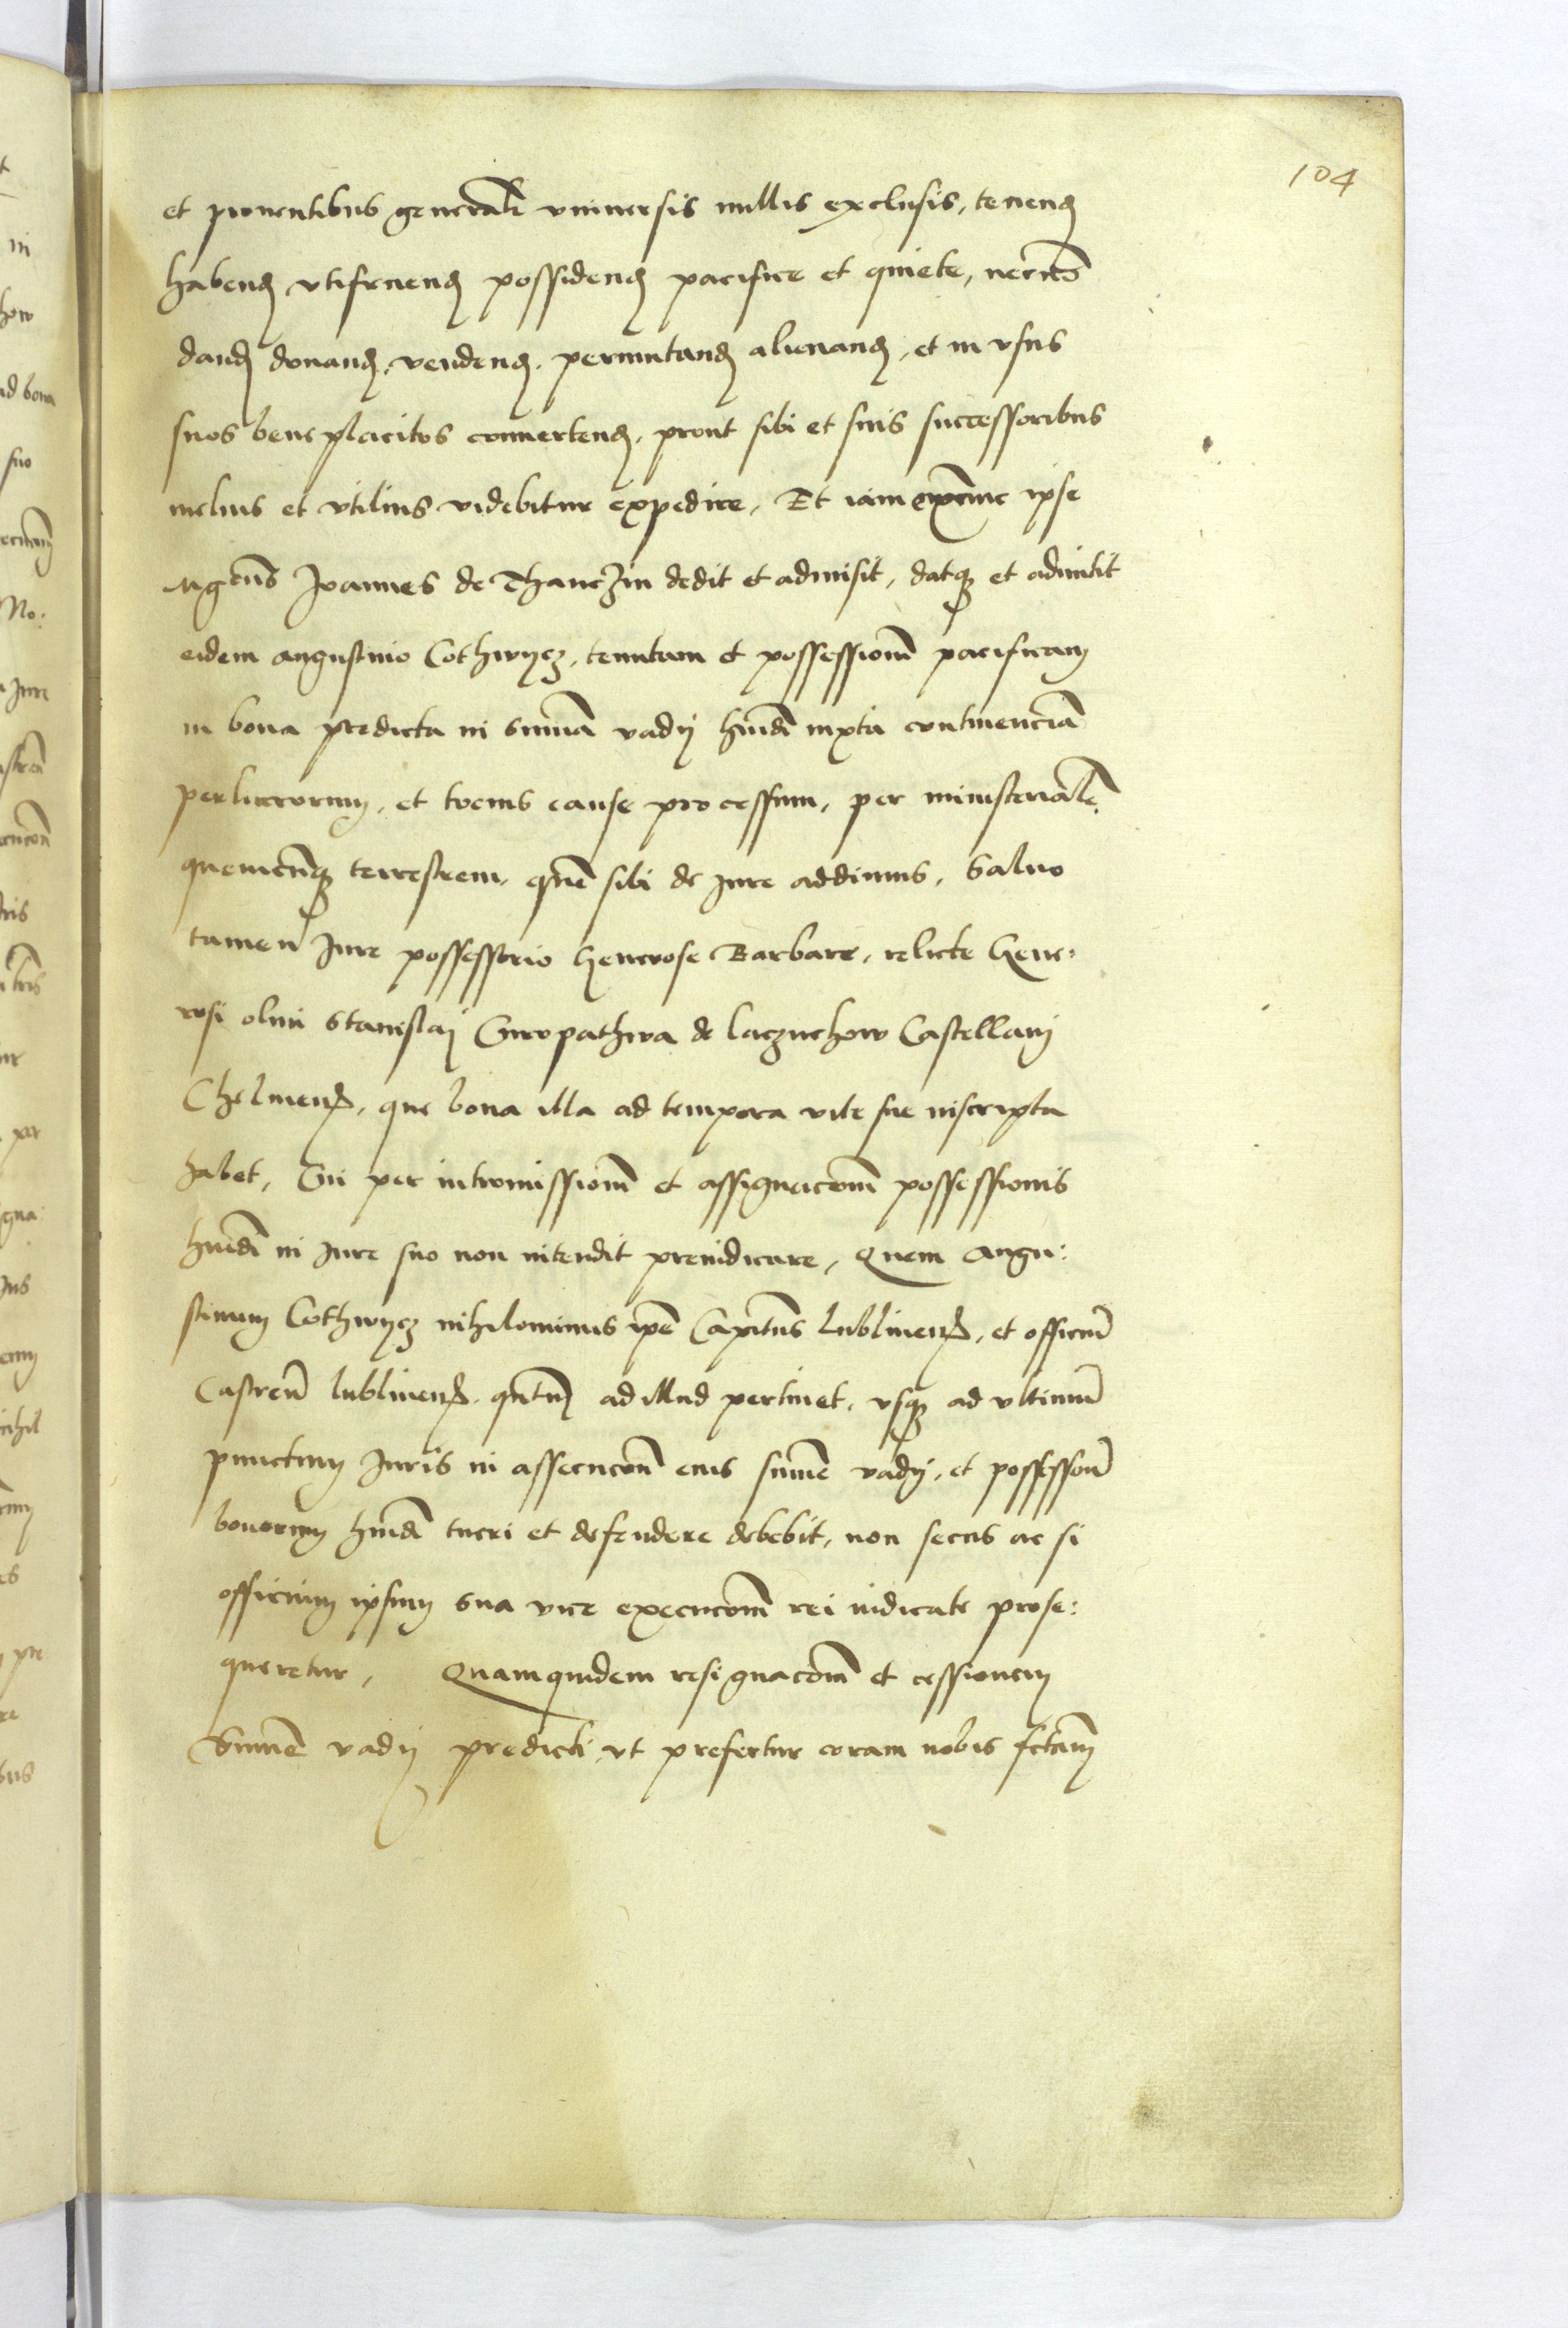 104
et proventibus generalr universis nullis exclusis, tenend
habend vtifruend possidend pacifice et quiete, necno
dand donand, vendend, permutand alienand, et in vsus
suos beneplacitos convertend, prout sibi et suis successoribus
melius et vtilius videbitur expedire, Et iam extunc ipse
Mgcus Joannes de Thanczin dedit et admisit, datq et admittit
eidem augustino Cothwycz, tenutam et possessionem pacificam
in bona predicta in Summa vadij hmoi iuxta continencia
perlucrorum, et tocius cause processum, per ministeriale
quemcunq terrestrem, que sibi de Jure addimus, Salvo
tamen Jure possessorio Generose Barbare, relicte Gene:
rosi olim Stanislaj Curopathwa de laczuchow Castellanj
Chelmens, que bona illa ad tempora vite sue inscripta
habet, Cui per intromissionem et assignacionem possessionis
hmoi in Jure suo non intendit preiudicare, Quem Augu:
stinum Cothwycz nihilominus ipse Capitus lublinens, et officiu
Castren lublinens, quantum ad illud pertinet, vsq ad vltimu
punctum Juris in assecucone eius summe vadij, et possessione
bonorum hmoi tueri et defendere debebit, non secus ac si
officium ipsum sua vice execucionem rei iudicate prose:
queretur, Quamquidem resignacionem et cessionem
Summe vadij predicti, vt prefertur coram nobis fctam